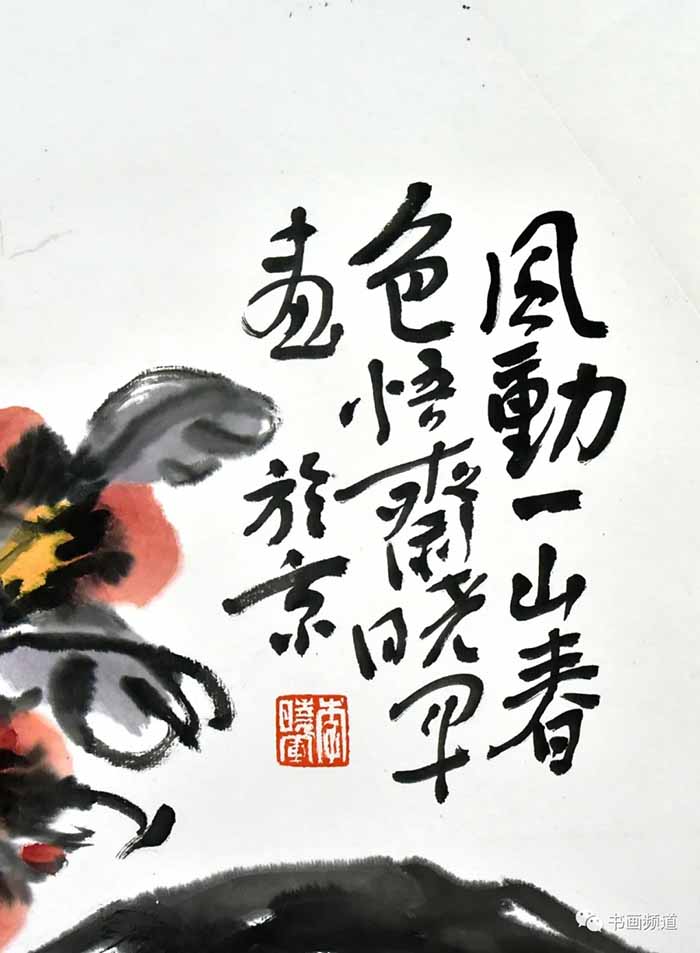 風動一山春
色悟齋曉军
畫於京
李曉軍
书画频道